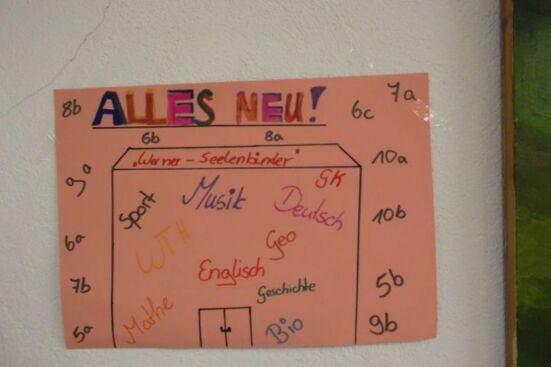 8b ALLES NEU! 6c 7a
6b 8a
9a „Werner - Seelenbinder" 10a
GK
Sport Musik Deutsch 10b
6a WTH Geo
7b Englisch 5b
Geschichte
5a Mathe Bio 9b